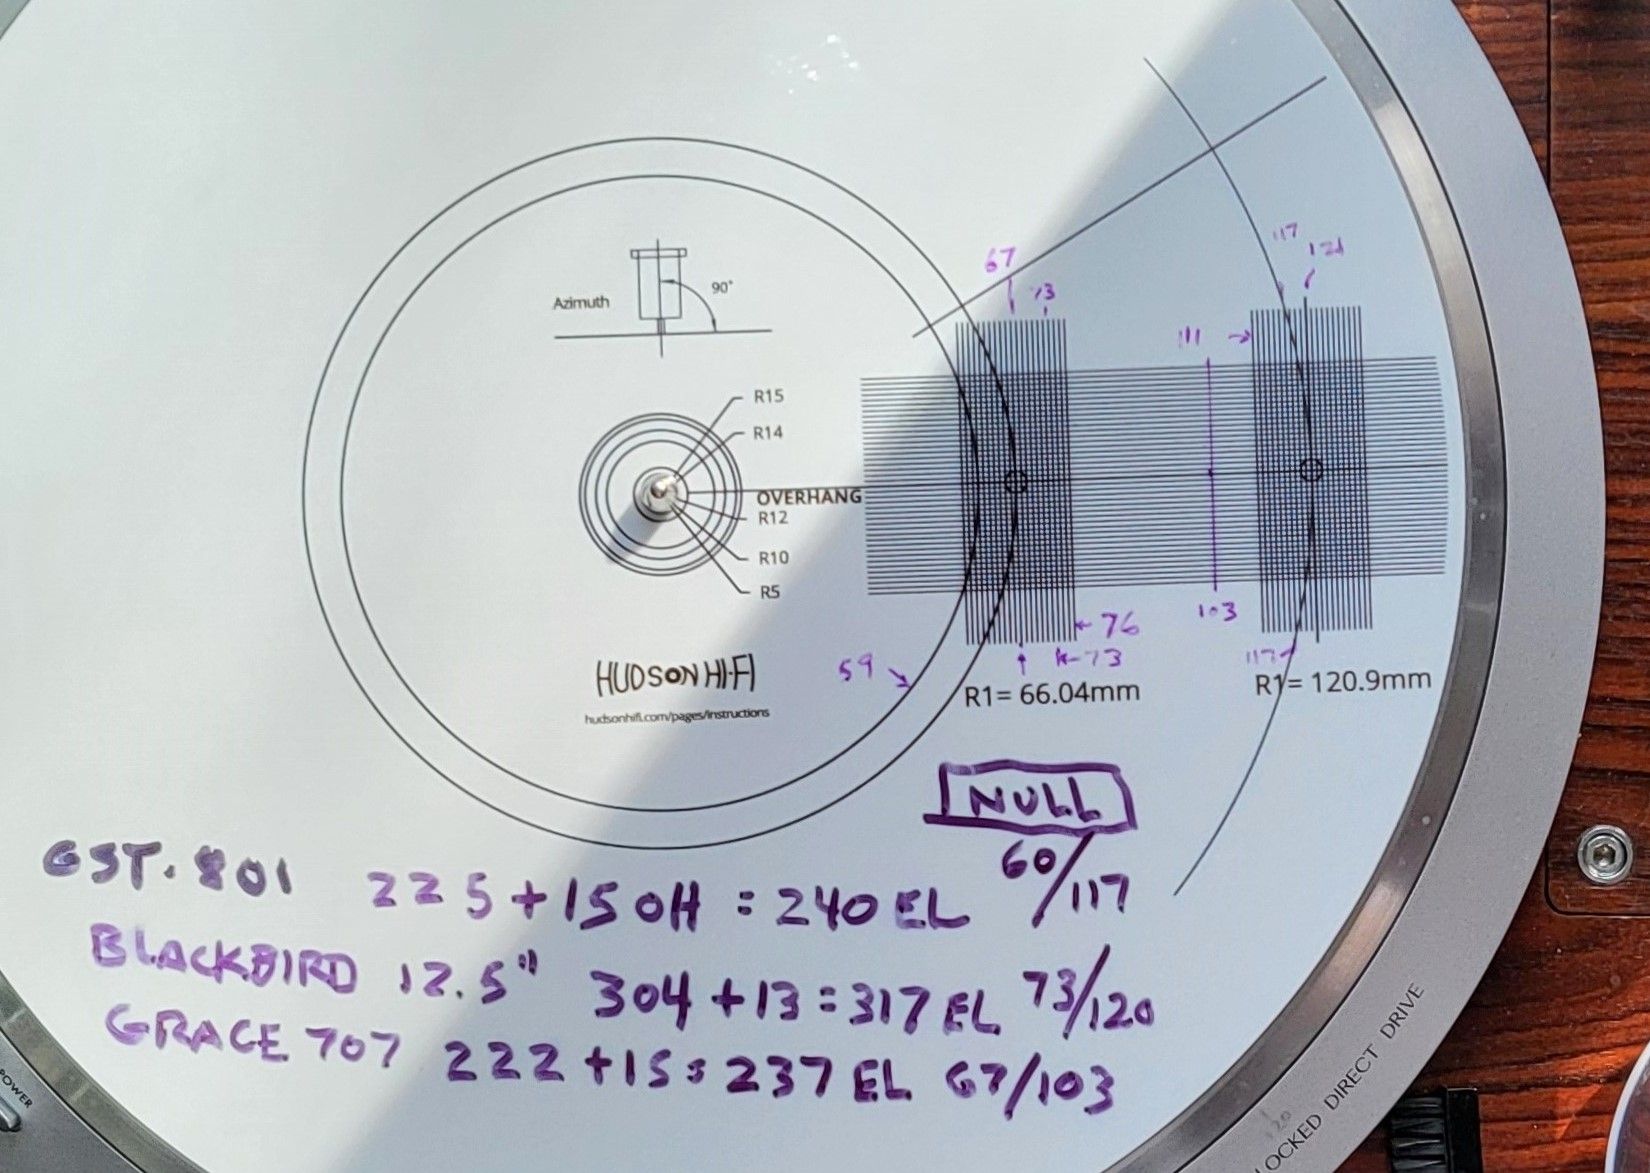 117
121
67
73
90°
Azimuth
111
R15
R14
OVERHANG
R12
R10
R5
103
76
73
59
117
HUDSON HI-FI
hudsonhifi.com/pages/instructions
R1= 66.04mm
R1= 120.9mm
NULL
GST. 801 225 + 15 OH = 240 EL 60/117
BLACKBIRD 12.5" 304 + 13 = 317 EL 73/120
GRACE 707 222 + 15 = 237 EL 67/103
POWER
LOCKED DIRECT DRIVE